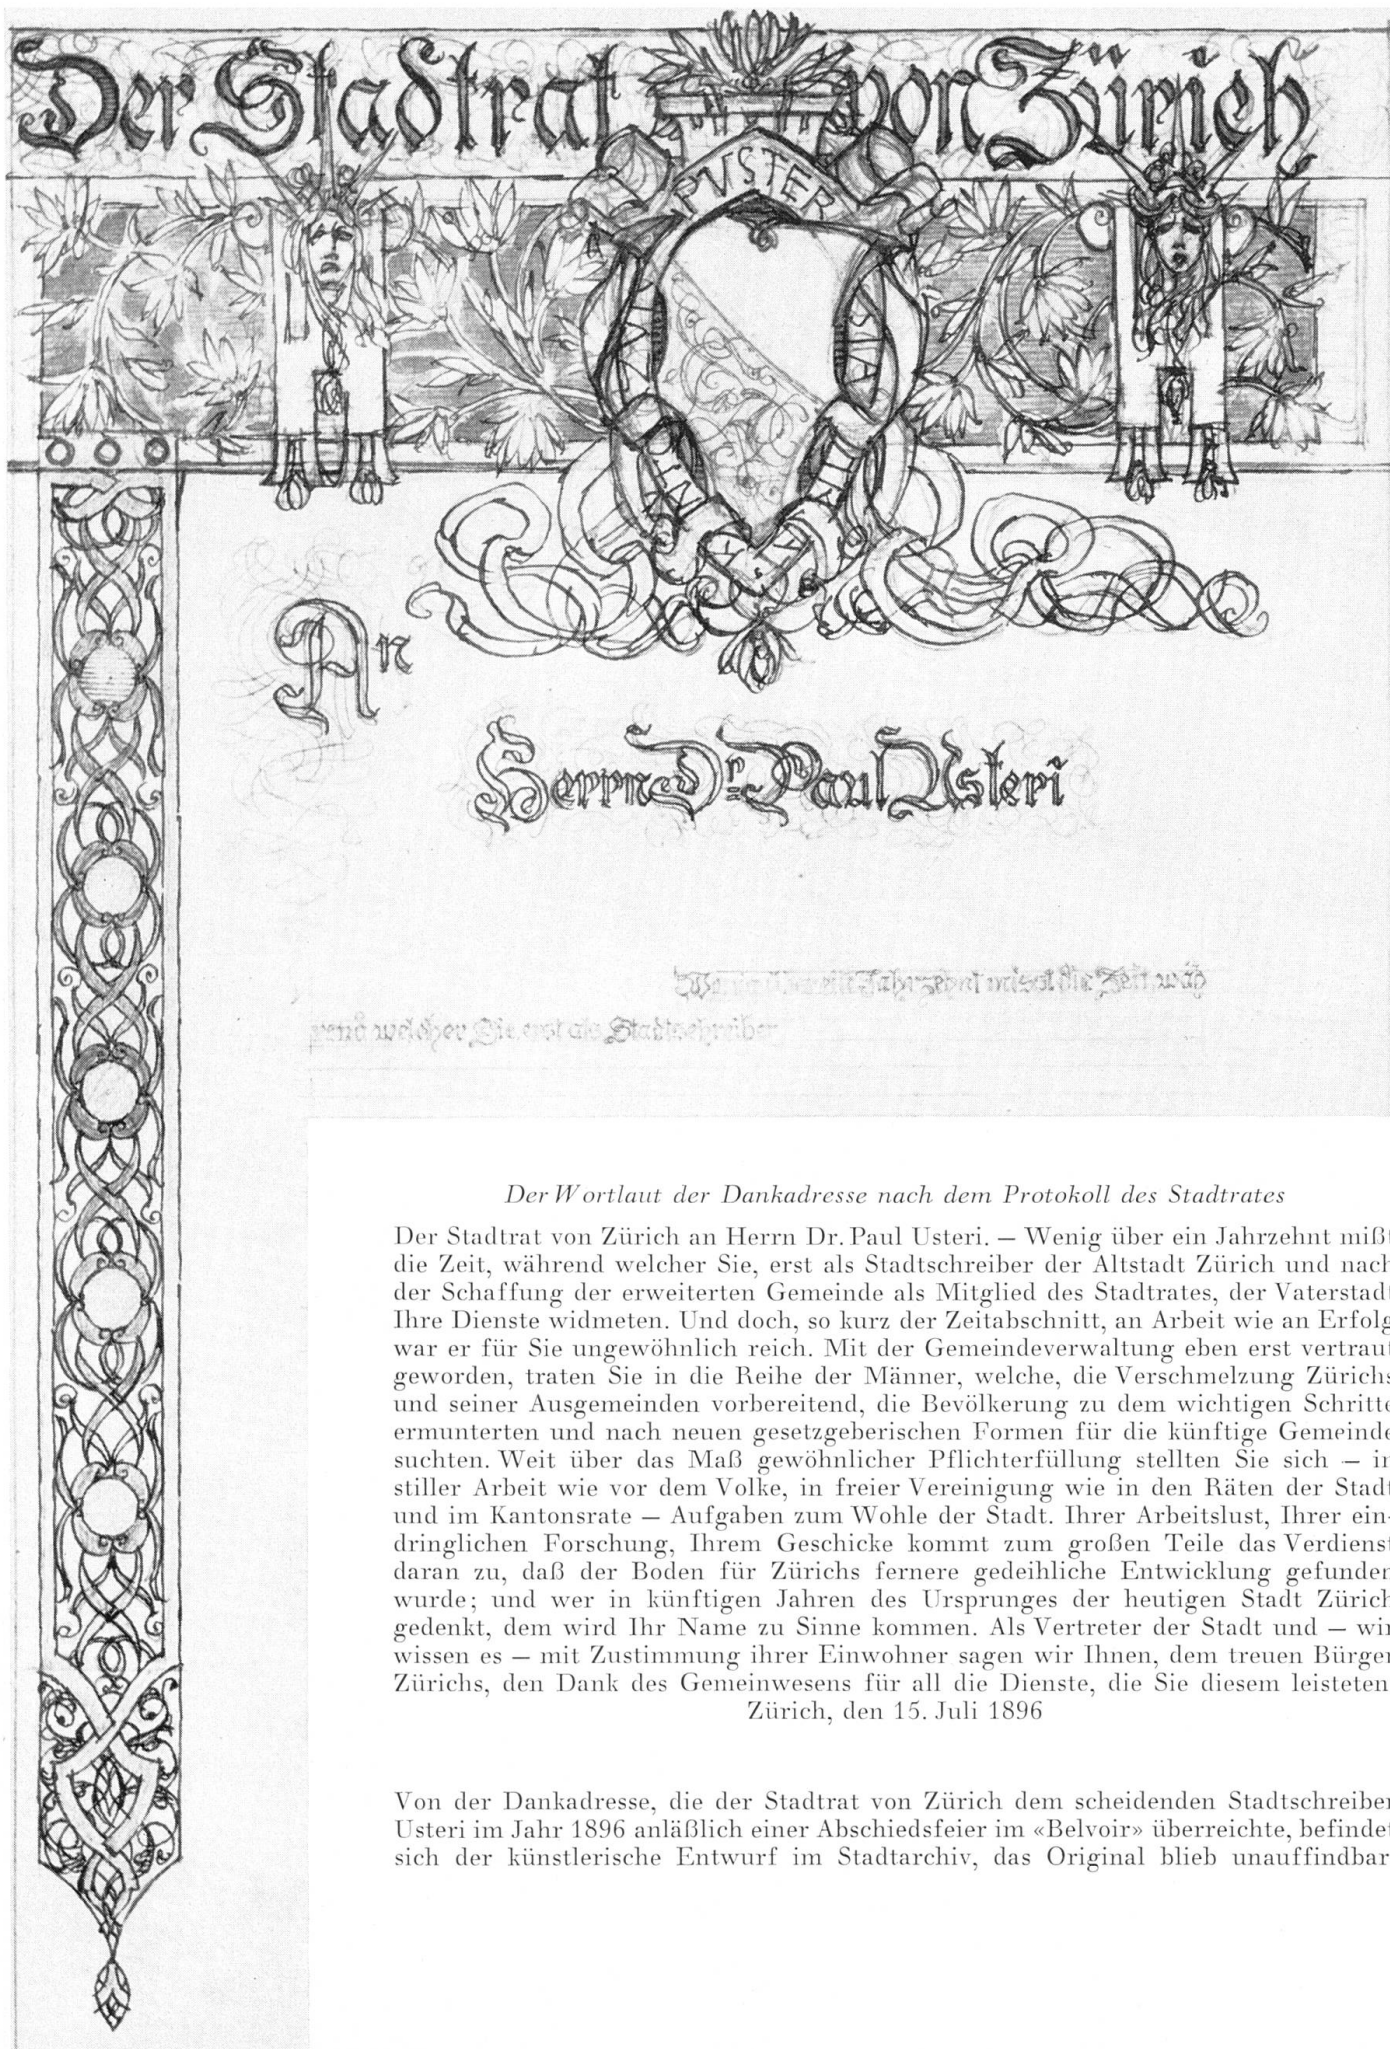 Der Stadtrat von Zürich
An
Herrn Dr. Paul Usteri
die Zeit, wäh
rend welcher Sie, erst als Stadtschreiber
Der Wortlaut der Dankadresse nach dem Protokoll des Stadtrates
Der Stadtrat von Zürich an Herrn Dr. Paul Usteri. — Wenig über ein Jahrzehnt mißt
die Zeit, während welcher Sie, erst als Stadtschreiber der Altstadt Zürich und nach
der Schaffung der erweiterten Gemeinde als Mitglied des Stadtrates, der Vaterstadt
Ihre Dienste widmeten. Und doch, so kurz der Zeitabschnitt, an Arbeit wie an Erfolg
war er für Sie ungewöhnlich reich. Mit der Gemeindeverwaltung eben erst vertraut
geworden, traten Sie in die Reihe der Männer, welche, die Verschmelzung Zürichs
und seiner Ausgemeinden vorbereitend, die Bevölkerung zu dem wichtigen Schritte
ermunterten und nach neuen gesetzgeberischen Formen für die künftige Gemeinde
suchten. Weit über das Maß gewöhnlicher Pflichterfüllung stellten Sie sich — in
stiller Arbeit wie vor dem Volke, in freier Vereinigung wie in den Räten der Stadt
und im Kantonsrate — Aufgaben zum Wohle der Stadt. Ihrer Arbeitslust, Ihrer ein-
dringlichen Forschung, Ihrem Geschicke kommt zum großen Teile das Verdienst
daran zu, daß der Boden für Zürichs fernere gedeihliche Entwicklung gefunden
wurde; und wer in künftigen Jahren des Ursprunges der heutigen Stadt Zürich
gedenkt, dem wird Ihr Name zu Sinne kommen. Als Vertreter der Stadt und — wir
wissen es — mit Zustimmung ihrer Einwohner sagen wir Ihnen, dem treuen Bürger
Zürichs, den Dank des Gemeinwesens für all die Dienste, die Sie diesem leisteten
Zürich, den 15. Juli 1896
Von der Dankadresse, die der Stadtrat von Zürich dem scheidenden Stadtschreiber
Usteri im Jahr 1896 anläßlich einer Abschiedsfeier im «Belvoir» überreichte, befindet
sich der künstlerische Entwurf im Stadtarchiv, das Original blieb unauffindbar